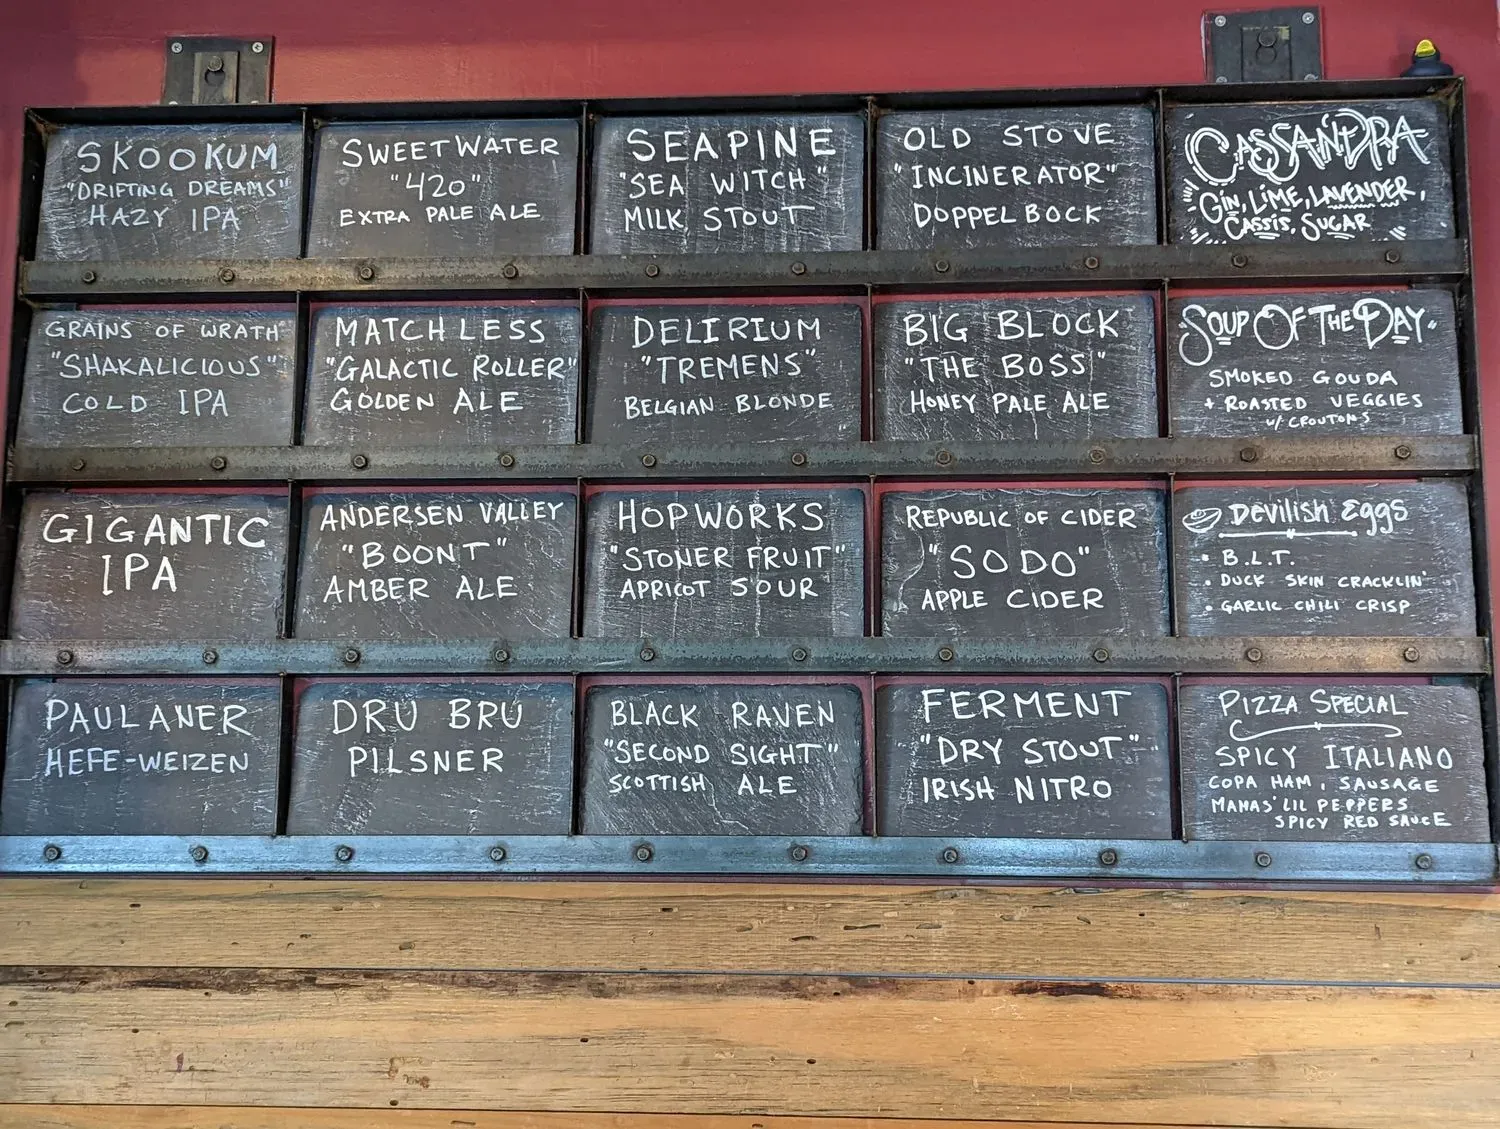 SKOOKUM
"DRIFTING DREAMS"
HAZY IPA
SWEETWATER
"420"
EXTRA PALE ALE
SEAPINE
"SEA WITCH"
MILK STOUT
OLD STOVE
"INCINERATOR"
DOPPELBOCK
CASSANDRA
GIN, LIME, LAVENDER,
CASSIS, SUGAR
GRAINS OF WRATH
"SHAKALICIOUS"
COLD IPA
MATCHLESS
"GALACTIC ROLLER"
GOLDEN ALE
DELIRIUM
"TREMENS"
BELGIAN BLONDE
BIG BLOCK
"THE BOSS"
HONEY PALE ALE
"SOUP OF THE DAY"
SMOKED GOUDA
+ ROASTED VEGGIES
W/ CROUTONS
GIGANTIC
IPA
ANDERSEN VALLEY
"BOONT"
AMBER ALE
HOPWORKS
"STONER FRUIT"
APRICOT SOUR
REPUBLIC OF CIDER
"SODO"
APPLE CIDER
DEVILISH EGGS
• B.L.T.
• DUCK SKIN CRACKLIN'
• GARLIC CHILI CRISP
PAULANER
HEFE-WEIZEN
DRU BRU
PILSNER
BLACK RAVEN
"SECOND SIGHT"
SCOTTISH ALE
FERMENT
"DRY STOUT"
IRISH NITRO
PIZZA SPECIAL
SPICY ITALIANO
COPA HAM, SAUSAGE
MAMAS' LIL PEPPERS
SPICY RED SAUCE